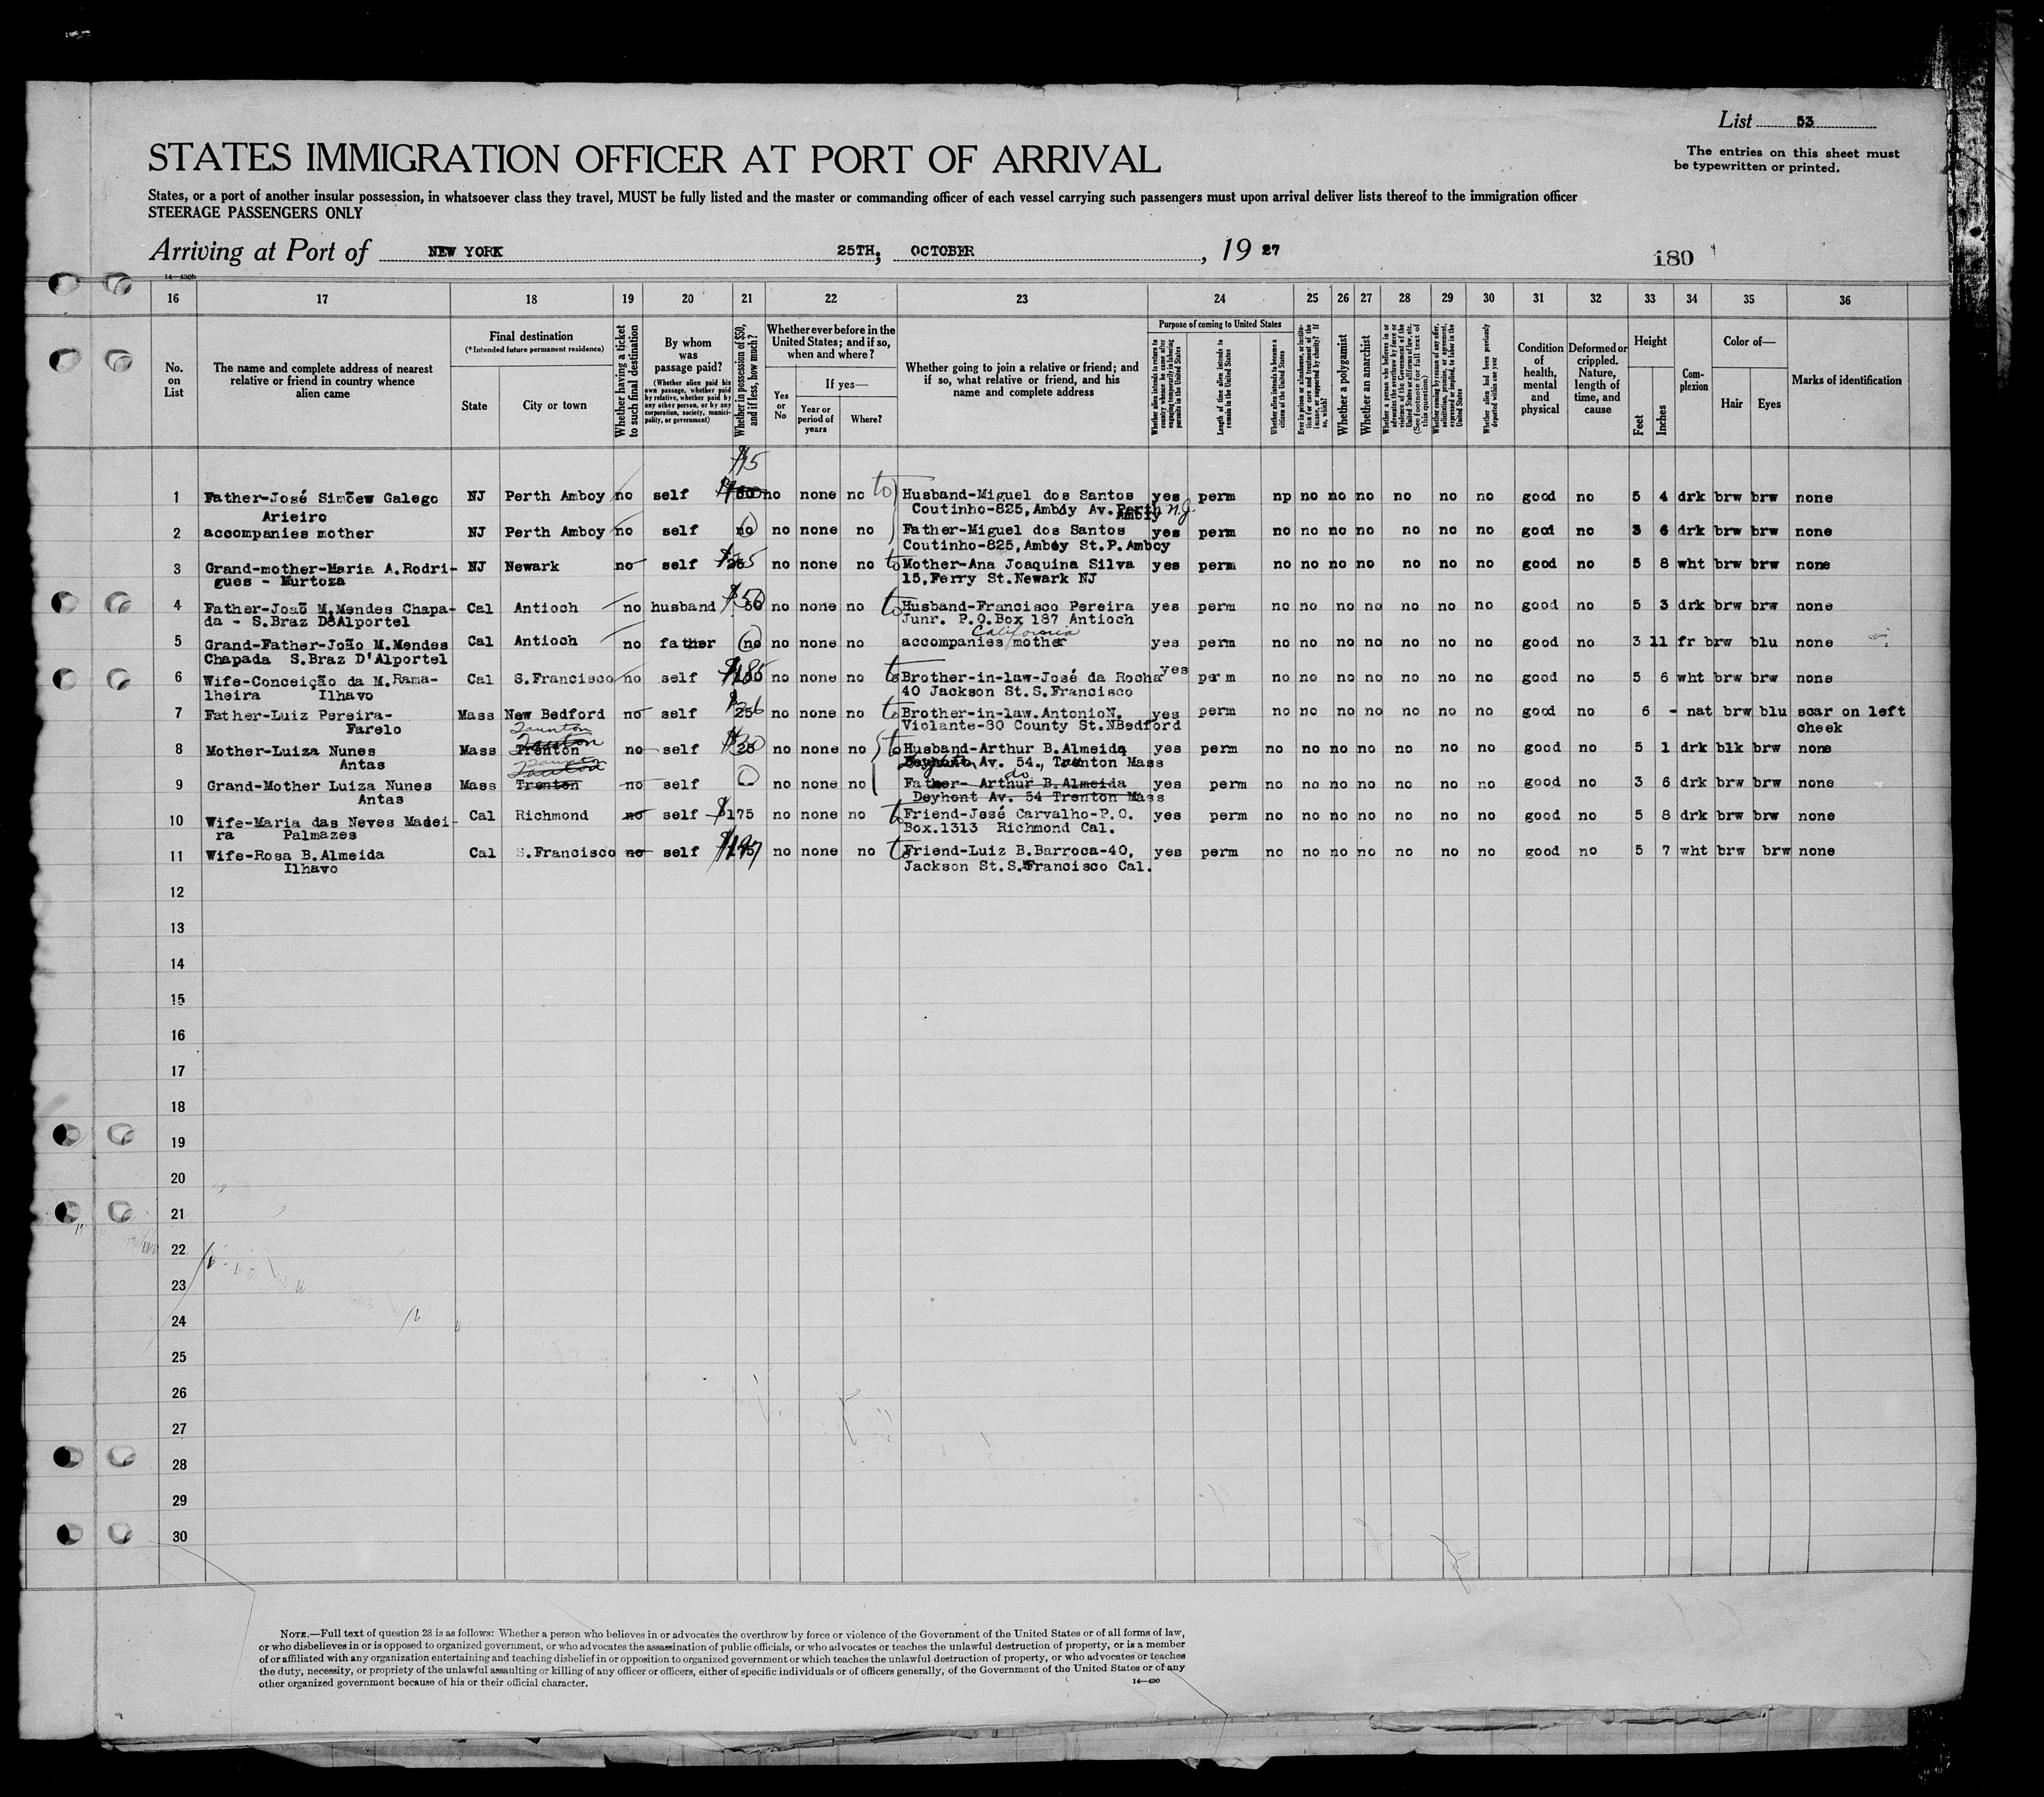 List 53
The entries on this sheet must
be typewritten or printed.
STATES IMMIGRATION OFFICER AT PORT OF ARRIVAL
States, or a port of another insular possession, in whatsoever class they travel, MUST be fully listed and the master or commanding officer of each vessel carrying such passengers must upon arrival deliver lists thereof to the immigration officer
STEERAGE PASSENGERS ONLY
Arriving at Port of NEW YORK 25TH, OCTOBER, 19 27
180
14-430b
16 17 18 19 20 21 22 23 24 25 26 27 28 29 30 31 32 33 34 35 36
No. on List
The name and complete address of nearest relative or friend in country whence alien came
Final destination
(*Intended future permanent residence)
State
City or town
Whether having a ticket to such final destination
By whom was passage paid?
(Whether alien paid his own passage, whether paid by relative, whether paid by any other person, or by any corporation, society, municipality, or government)
Whether in possession of $50, and if less, how much?
Whether ever before in the United States; and if so, when and where?
Yes or No
If yes—
Year or period of years
Where?
Whether going to join a relative or friend; and if so, what relative or friend, and his name and complete address
Purpose of coming to United States
Length of time alien intends to remain in the United States
Whether alien intends to become a citizen of the United States
Whether a polygamist
Whether an anarchist
Whether alien had been previously deported within one year
Condition of health, mental and physical
Deformed or crippled. Nature, length of time, and cause
Height
Feet
Inches
Complexion
Color of—
Hair
Eyes
Marks of identification
$15
1 Father-José Simõew Galego NJ Perth Amboy no self no none no to Husband-Miguel dos Santos yes perm np no no no no no no good no 5 4 drk brw brw none
Arieiro Coutinho-825, Amboy Av. Perth Amboy N.J.
2 accompanies mother NJ Perth Amboy no self no no none no Father-Miguel dos Santos yes perm no no no no no no no good no 3 6 drk brw brw none
Coutinho-825, Amboy St.P.Amboy
3 Grand-mother-Maria A.Rodri- NJ Newark no self $25 no none no to Mother-Ana Joaquina Silva yes perm no no no no no no no good no 5 8 wht brw brw none
gues - Murtoza 15,Ferry St.Newark NJ
4 Father-Joaõ M.Mendes Chapa- Cal Antioch no husband $50 no none no to Husband-Francisco Pereira yes perm no no no no no no no good no 5 3 drk brw brw none
da - S.Braz D'Alportel Junr. P.O.Box 187 Antioch
California
5 Grand-Father-João M.Mendes Cal Antioch no father no no none no accompanies mother yes perm no no no no no no no good no 3 11 fr brw blu none
Chapada S.Braz D'Alportel
6 Wife-Conceição da M.Rama- Cal S.Francisco no self $185 no none no to Brother-in-law-José da Rocha yes perm no no no no no no no good no 5 6 wht brw brw none
lheira Ilhavo 40 Jackson St.S.Francisco
7 Father-Luiz Pereira- Mass New Bedford no self 25 no none no to Brother-in-law.AntonioN. yes perm no no no no no no no good no 6 - nat brw blu scar on left
Farelo Violante-80 County St.NBedford cheek
Taunton
8 Mother-Luiza Nunes Mass Trenton no self 25 no none no to Husband-Arthur B.Almeida yes perm no no no no no no no good no 5 1 drk blk brw none
Antas Av. 54., Mass
Taunton
9 Grand-Mother Luiza Nunes Mass Trenton no self no none no Father- Arthur B.Almeida do yes perm no no no no no no no good no 3 6 drk brw brw none
Antas Deyhont Av. 54 Trenton Mass
10 Wife-Maria das Neves Madei- Cal Richmond no self $175 no none no to Friend-José Carvalho-P.O. yes perm no no no no no no no good no 5 8 drk brw brw none
ra Palmazes Box.1313 Richmond Cal.
11 Wife-Rosa B.Almeida Cal S.Francisco no self no none no to Friend-Luiz B.Barroca-40, yes perm no no no no no no no good no 5 7 wht brw brw none
Ilhavo Jackson St.S.Francisco Cal.
12
13
14
15
16
17
18
19
20
21
22
23
24
25
26
27
28
29
30
NOTE.—Full text of question 28 is as follows: Whether a person who believes in or advocates the overthrow by force or violence of the Government of the United States or of all forms of law,
or who disbelieves in or is opposed to organized government, or who advocates the assassination of public officials, or who advocates or teaches the unlawful destruction of property, or is a member
of or affiliated with any organization entertaining and teaching disbelief in or opposition to organized government or which teaches the unlawful destruction of property, or who advocates or teaches
the duty, necessity, or propriety of the unlawful assaulting or killing of any officer or officers, either of specific individuals or of officers generally, of the Government of the United States or of any
other organized government because of his or their official character.
14—430